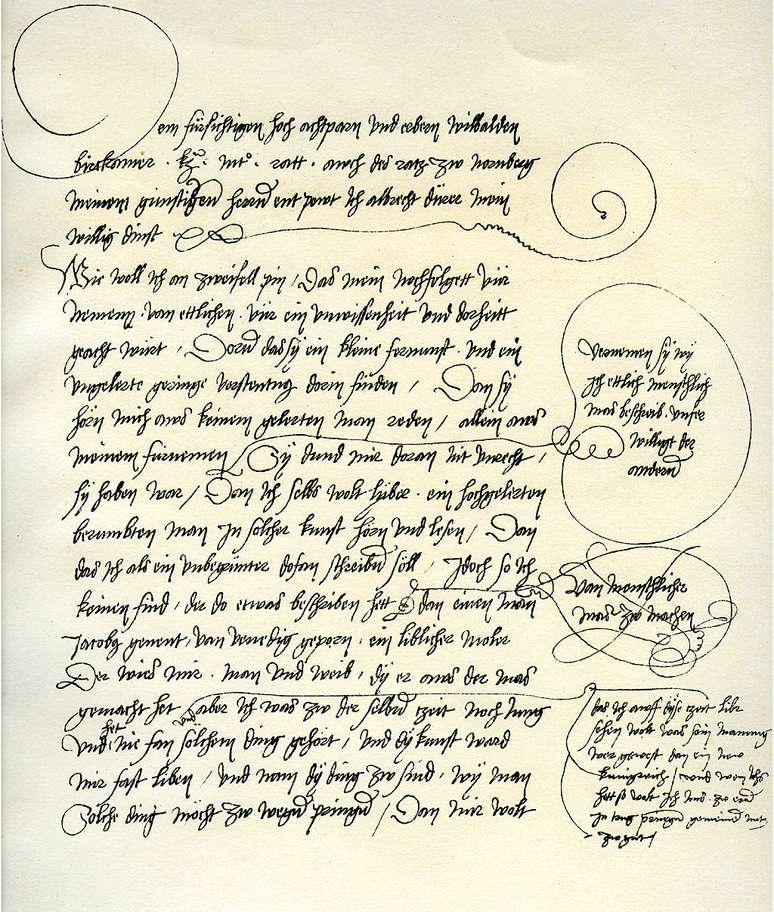 Dem fürsichtigen hoch achtparn vnd erbern wilbalden
birckamer · kr · mt · ratt · awch des ratz zw nornberg
meinem günstigen herrn ent pewt Ich albrecht dürer mein
willig dinst
Wie woll ich an zweifell pin / Das mein nochfolgett vür
nemenn · van ettlichen · vür ein vnwissenheit vnd dorheitt
geacht würt / Dorin das sy ein kleine fernunft · vnd ein
vngelerte geringe verstentnus dorin finden / Dan sy
hörn mich aws keinem gelerten man reden / allein aws
meinem fürnemen / Sy dund mir doran nit vnrecht /
sy haben war / Dan Ich selbs wolt lyber · ein hochgelerten
berumbten man In solcher kunst hörn vnd lesen / Dan
das ich als ein vnbegrünter dofan schreiben söll / Idoch so Ich
keinen find / der do etwas beschriben hett dan einen man
Jacobus genent / van venedig geporn · ein liblicher moler
Der wies mir · man vnd weib / dy er aws der mas
gemacht het / aber Ich was zw der selben tzeit noch Jung
vnd het nie fan sölchem ding gehört / vnd dy kunst ward
mir fast liben / vnd nam dy ding zw sind / wy man
Solche ding möcht zw wegen pringen / Dan mir wolt
Vernemen sy wy
Ich ettlich menschlich
mas beschreib · vnser
willigt der
andern
Van menschlicher
mas zw machen
das Ich awff dyse tzeit libr
sehen wolt was sein mainung
wer gewest dan ein new
kunigreich / vnd wen Ichs
hett so wolt Ich Ims · zw eren
In trug pringen gemeinem nutz
zw gut /